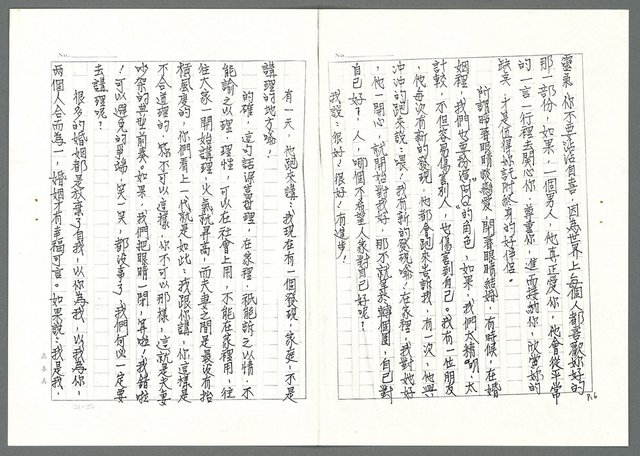 靈氣，你不要沾沾自喜，因為世界上每個人都喜歡妳好的
那一部份，如果，一個男人，他真正愛你，他會從平常
的一言一行裡去關心你，尊重你，進而接納你，欣賞妳的
缺失，才是值得妳託附終身的好伴侶。
所謂睜著眼睛談戀愛，閉著眼睛結婚，有時候，在婚
姻裡，我們也要扮演「阿Q」的角色，如果，我們太精明，太
計較，不但容易傷害別人，也傷害到自己。我有一位朋友
，他每次有新的發現，他都會跑來告訴我，有一次，他興
沖沖的跑來說：喂！我有新的發現喻！在家裡，我對她好
，他一開心，就開始對我好，那不就等於轉個圈，自己對
自己好？人，哪個不希望人家對自己好呢？
我說：很好！很好！有進步！
P.6
有一天，他跑來講：我現在有一個發現，家庭，不是
講理的地方喻！
的確，這句話深富哲理，在家裡，祇能訴之以情，不
能諭之以理，理性，可以在社會上用，不能在家裡用，往
往大家一開始講理，火氣就昇高，而夫妻之間是最沒有拍
檔風度的，你們看上一代就是如此：我跟你講，你這樣是
不合道理的，你不可以這樣，你不可以那樣，這就是夫妻
吵架的典型前奏。如果，我們把眼睛一閉，算啦！我錯啦
！可以避免的爭端，笑一笑，都沒事了，我們何必一定要
去講理呢？
很多的婚姻都是放棄了有我，以你為我，以我為你，
兩個人合而為一，婚姻才有幸福可言。如果說：我是我，